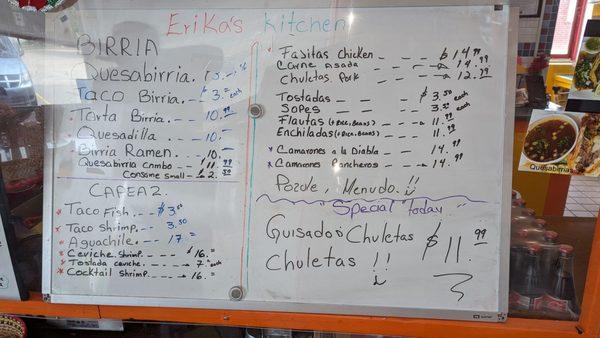 ERiKa's Kitchen
BIRRIA
Quesabirria.
Taco Birria. $3.00 each
Torta Birria. 10.99
Quesadilla 10.
Birria Ramen. 10.
Quesabirria combo $11.99
Consome small 2.50
CAPEAZ.
Taco Fish. $3.50
Taco shrimp. 3.50
Aguachile. 17.
Ceviche shrimp. $16.
Tostada ceviche. 7. each
Cocktail shrimp. 16.
Fajitas Chicken $14.99
Carne Asada 14.99
Chuletas Pork 12.99
Tostadas $3.50 each
Sopes 3.50 each
Flautas (+Rice, Beans) 11.99
Enchiladas (+Rice, Beans) 11.99
Camarones a la Diabla 14.99
Camarones Rancheros 14.99
Pozole, Menudo.!!
"Special Today"
Guisado ò Chuletas $11.99
Chuletas !!
Quesabirrias